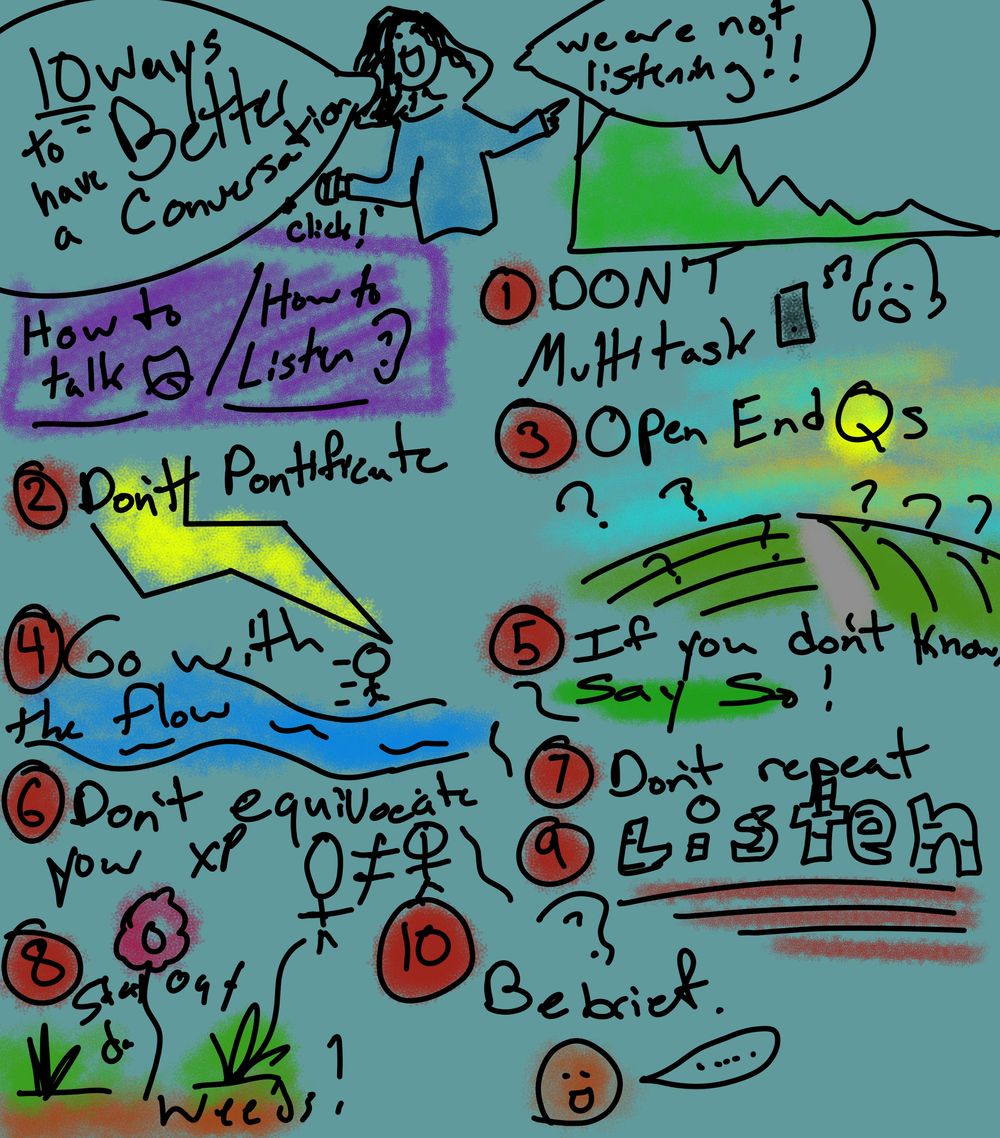 10 Ways
to Better
have
a Conversation
we are not
listening!!
"click!"
How to
talk
/
How to
Listen?
1 DON'T
Multitask
2 Don't Pontificate
3 Open End Qs
? ? ? ? ?
? ?
4 Go with
the flow
5 If you don't know,
Say So!
6 Don't equivocate
your xp
≠
7 Don't repeat
8 Stay out
da
Weeds!
9 Listen
10
Be brief.
.....